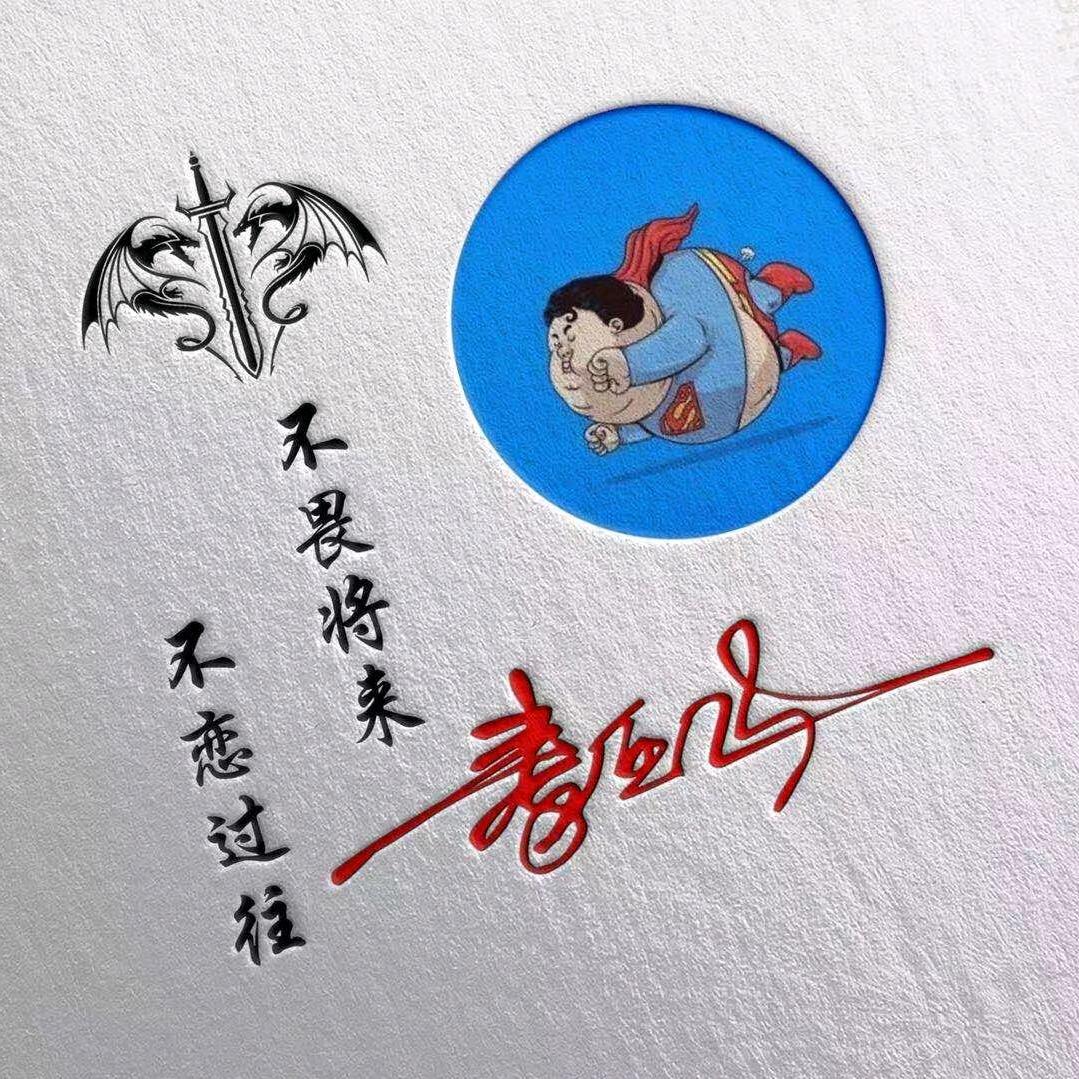 不畏将来
不恋过往